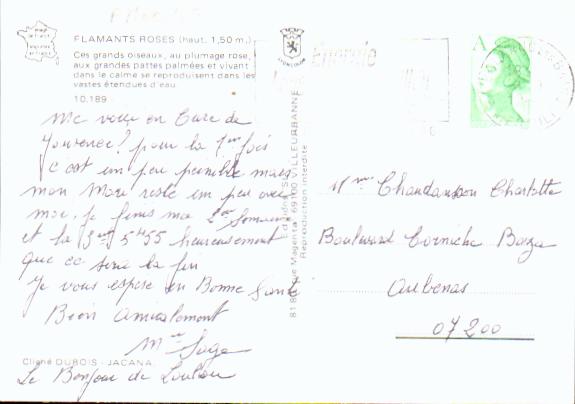 FLAMANTS ROSES (haut. 1,50 m.)
Ces grands oiseaux, au plumage rose,
aux grandes pattes palmées et vivant
dans le calme se reproduisent dans les
vastes étendues d'eau.
10.189
Me voici en Cure de
pour la 1ère fois
c'est un peu penible mais
mon Mari reste un peu avec
moi, je finis ma 2ème Semaine
et la 3ème heureusement
que ce sera la fin
Je vous espère en Bonne Santé
Bien Amicalement
Mme
Le Bonjour de Loulou
Cliché DUBOIS - JACANA
LYONCOLOR
81 Rue Magenta 69100 VILLEURBANNE
Reproduction interdite
A
Mme Charlotte
Boulevard Corniche
Aubenas
07200